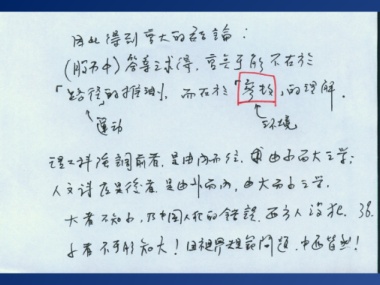 因此得到重大的結論：
(股市中)答案之求得，完全不在於
「路徑的推測」，而在於「參數」的理解。
運動 环境
理工科強調前者，是由內而外，由小而大之学；
人文詩在是後者，是由外而內，由大而小之学。
大者不知小，乃中國人犯的錯誤，西方人沒犯。
小者不可能知大！因視界是前問題，中西皆然！